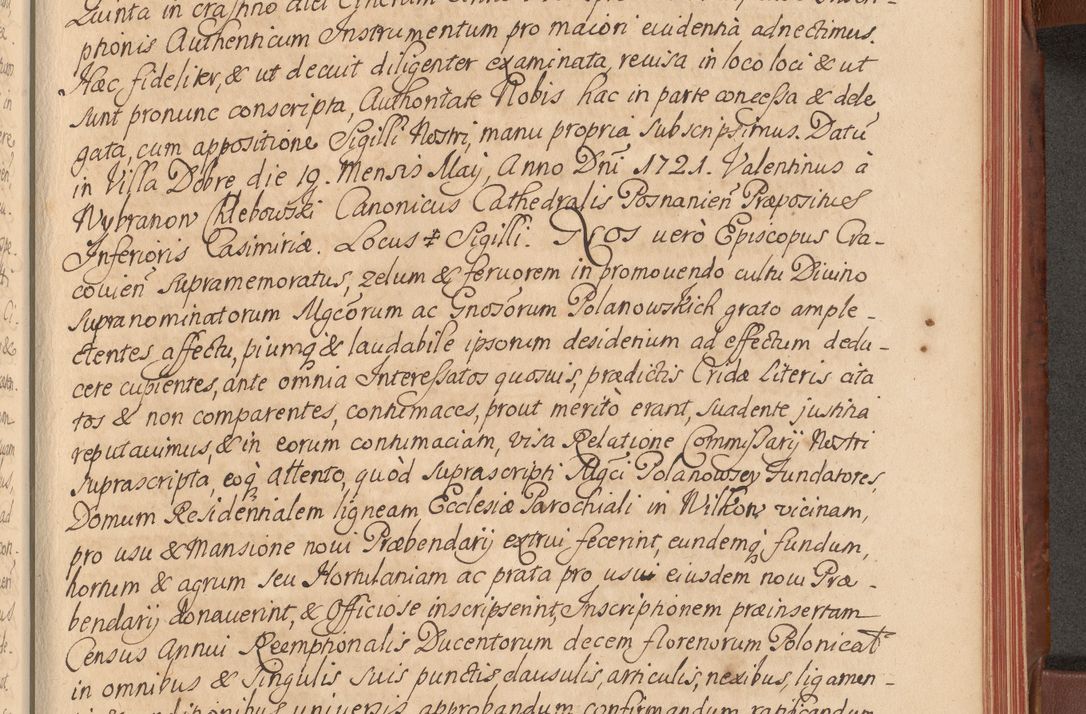 Quinta in crastino diei
ptionis Authenticum Instrumentum pro maiori euidentia adnectimus.
Hæc fideliter, & ut decuit diligenter examinata, reuisa in loco loci & ut
sunt pronunc conscripta, Authoritate Nobis hac in parte concessa & dele
gata, cum appositione Sigilli Nostri, manu propria subscripsimus. Datũ
in Villa Dobre, die 19. Mensis Maij, Anno Dnĩ 1721. Valentinus à
Wybranow Chlebowski Canonicus Cathedralis Posnanieñ Præpositus
Inferioris Casimiriæ. Locus ‡ Sigilli. Nos verò Episcopus Cra-
covieñ supramemoratus, zelum & feruorem in promouendo cultu Divino
supranominatorum Mgcõrum ac Gnosõrum Polanowskich grato ample-
ctentes affectu, piumq́ & laudabile ipsorum desiderium ad effectum dedu-
cere cupientes, ante omnia Interessatos quosuis, prædictis Cridæ Literis cita
tos & non comparentes, contumaces, prout meritò erant, suadente justitia
reputauimus, & in eorum contumaciam, visa Relatione Commissarij Nostri
suprascripta, eoq́ attento, quòd suprascripti Mgci Polanowscy Fundatores,
Domum Residentialem ligneam Ecclesiæ Parochiali in Wilkow vicinam,
pro usu & Mansione noui Præbendarij extrui fecerint, eundemq́ fundum,
hortum & agrum seu Hortulaniam ac prata pro usui eiusdem noui Præ-
bendarij donauerint, & Officiose inscripserint, Inscriptionem præinsertam
Census Annui Reemptionalis Ducentorum decem florenorum Polonicał
in omnibus & singulis suis punctis, clausulis, articulis, nexibus, ligamen-
universis approbandum confirmandum ratificandum